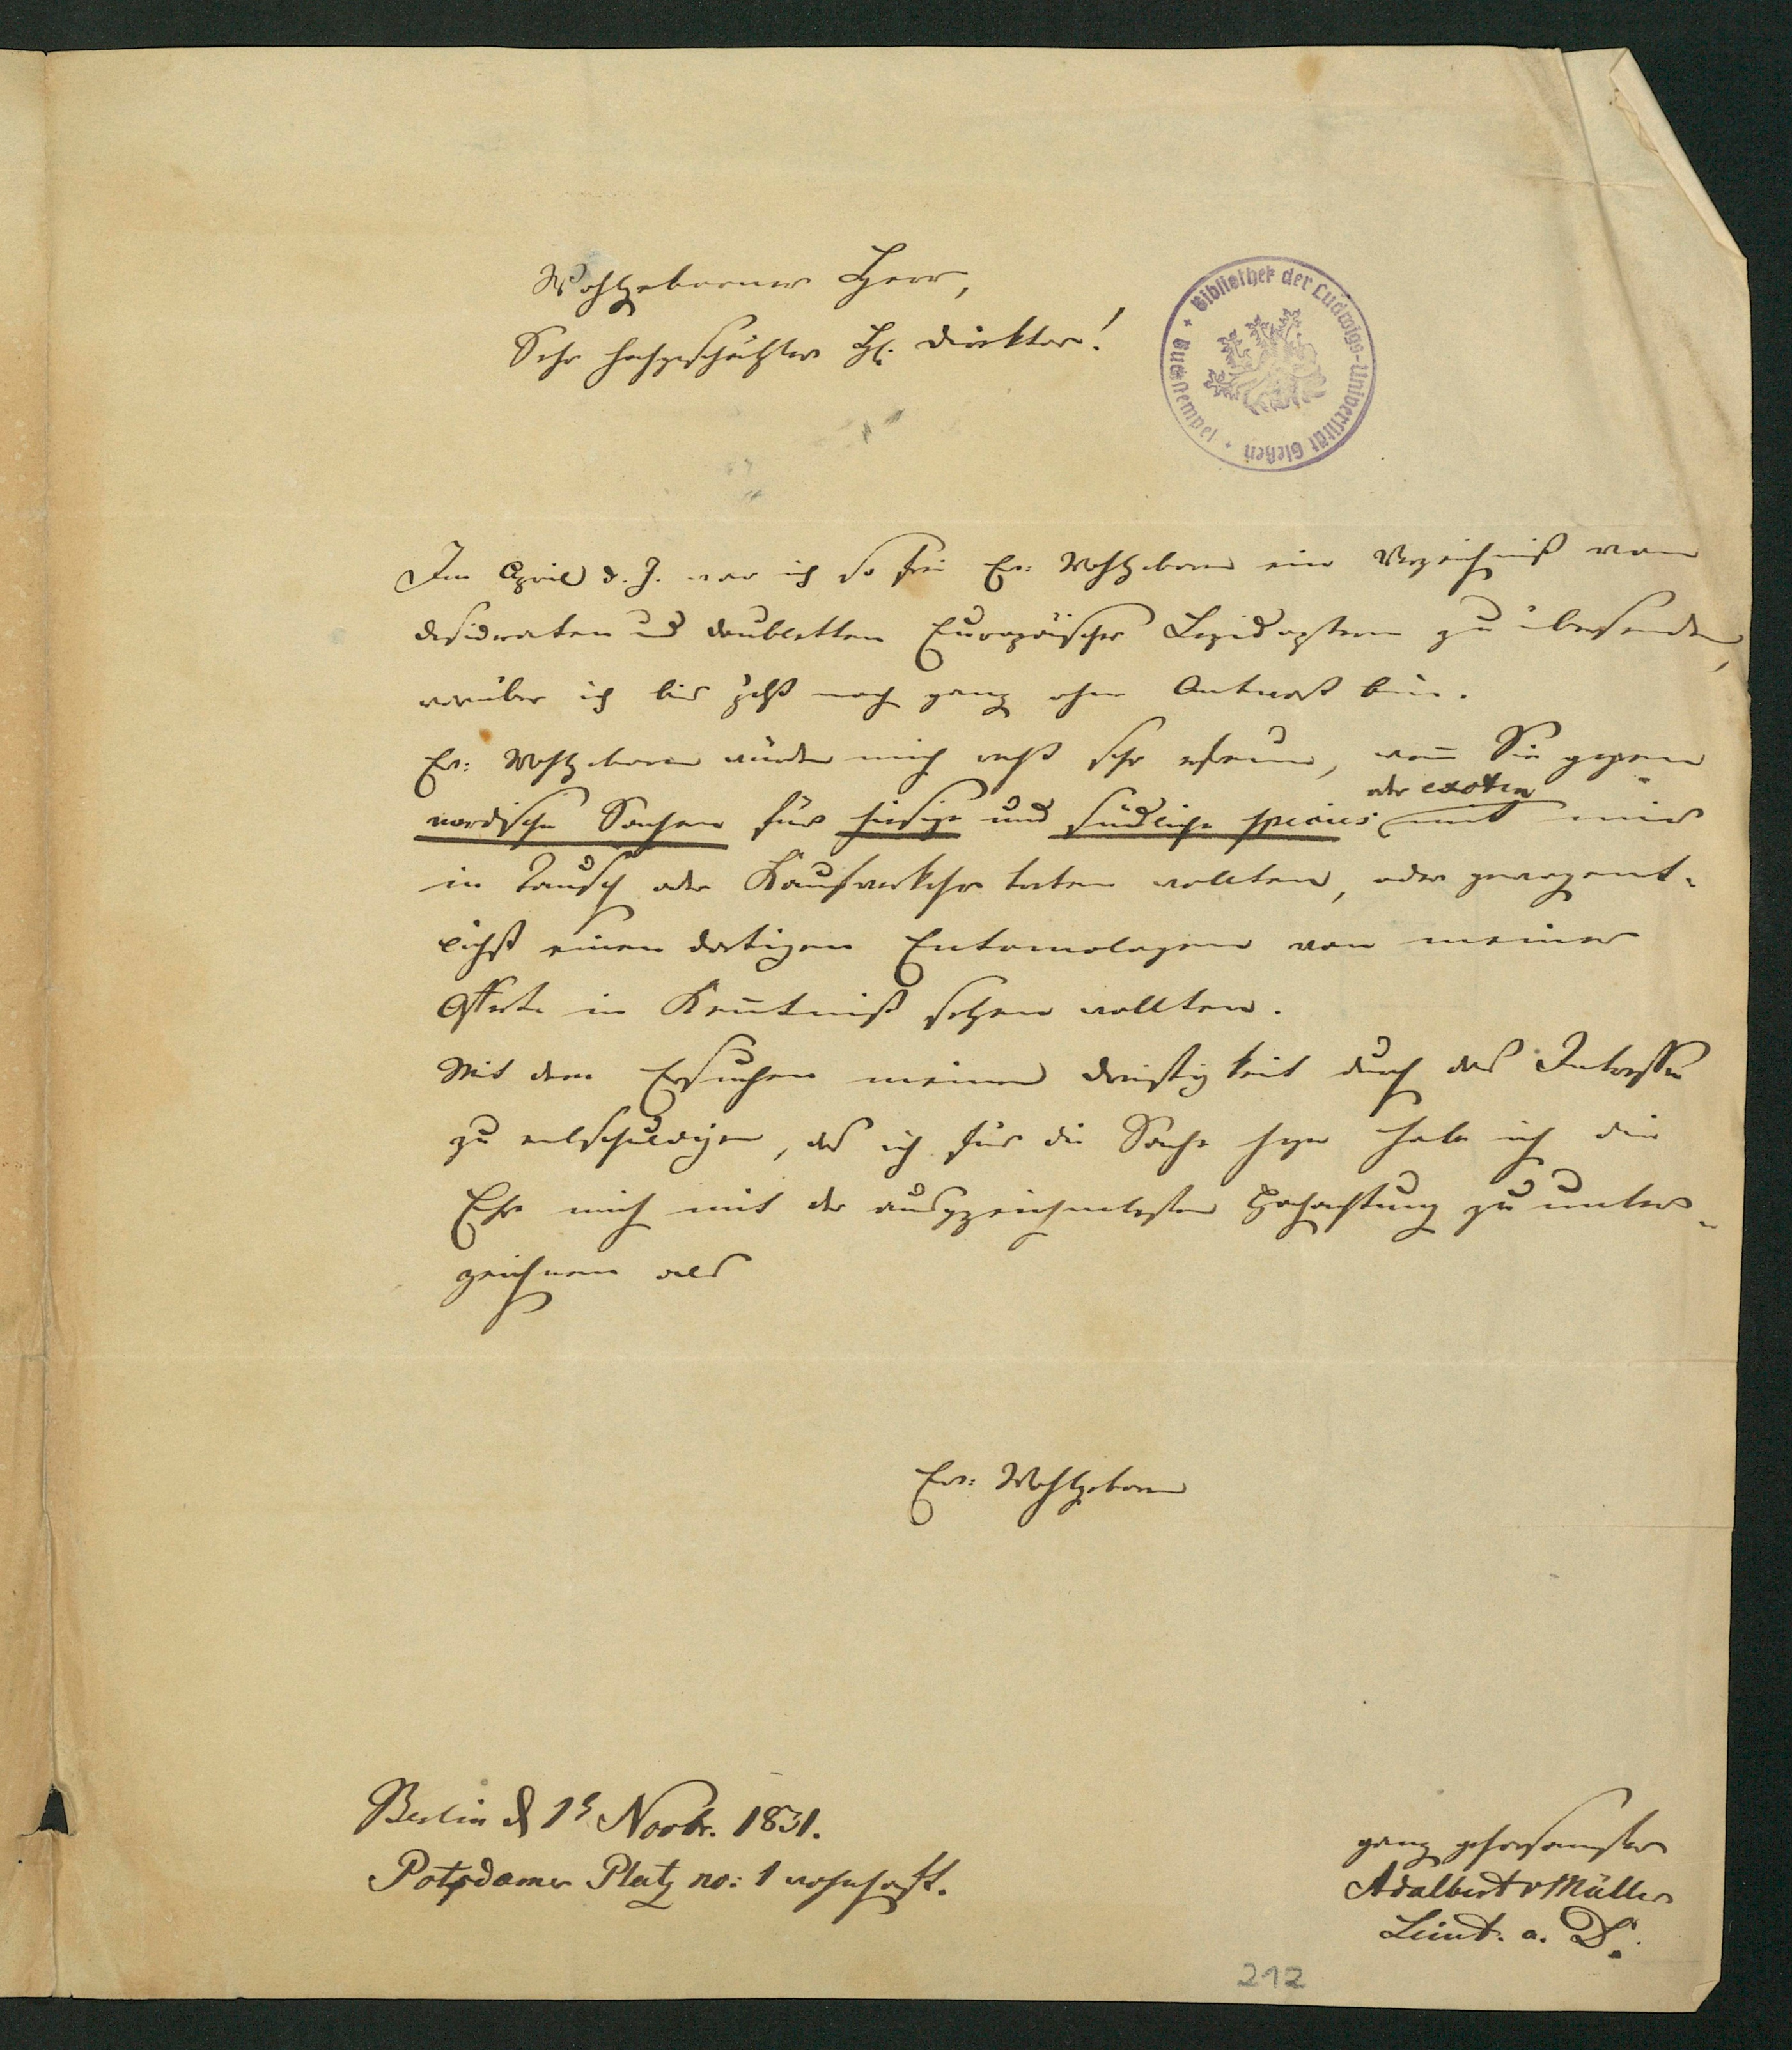 Wohlgeborner Herr,
Sehr hochgeschätzter H. Direktor!
Bibliothek der Ludwigs-Universität Gießen + Buchstempel +
Im April d. J. war ich so frei Ew: Wohlgeboren ein Verzeichniß von
desideraten und doubletten Europäischer Lepidoptern zu übersenden,
worüber ich bis jetzt noch ganz ohne Antwort bin.
Ew: Wohlgeboren würden mich recht sehr erfreun, wenn Sie gegen
oder exoten
nordische Sachen für hiesige und südliche species mit mir
in Tausch oder Kaufverkehr treten wollten, oder gewogent-
lichst einen dortigen Entomologen von meiner
Offerte in Kenntniß setzen wollten.
Mit dem Ersuchen meine Dreistigkeit durch das Interesse
zu entschuldigen, das ich für die Sache hege habe ich die
Ehre mich mit der ausgezeichnetesten Hochachtung zu unter-
zeichnen als
Ew: Wohlgeboren
Berlin d 1t Novbr. 1831.
Potsdamer Platz no: 1 wohnhaft.
ganz gehorsamster
Adalbert v Müller
Lieut. a. D.
212